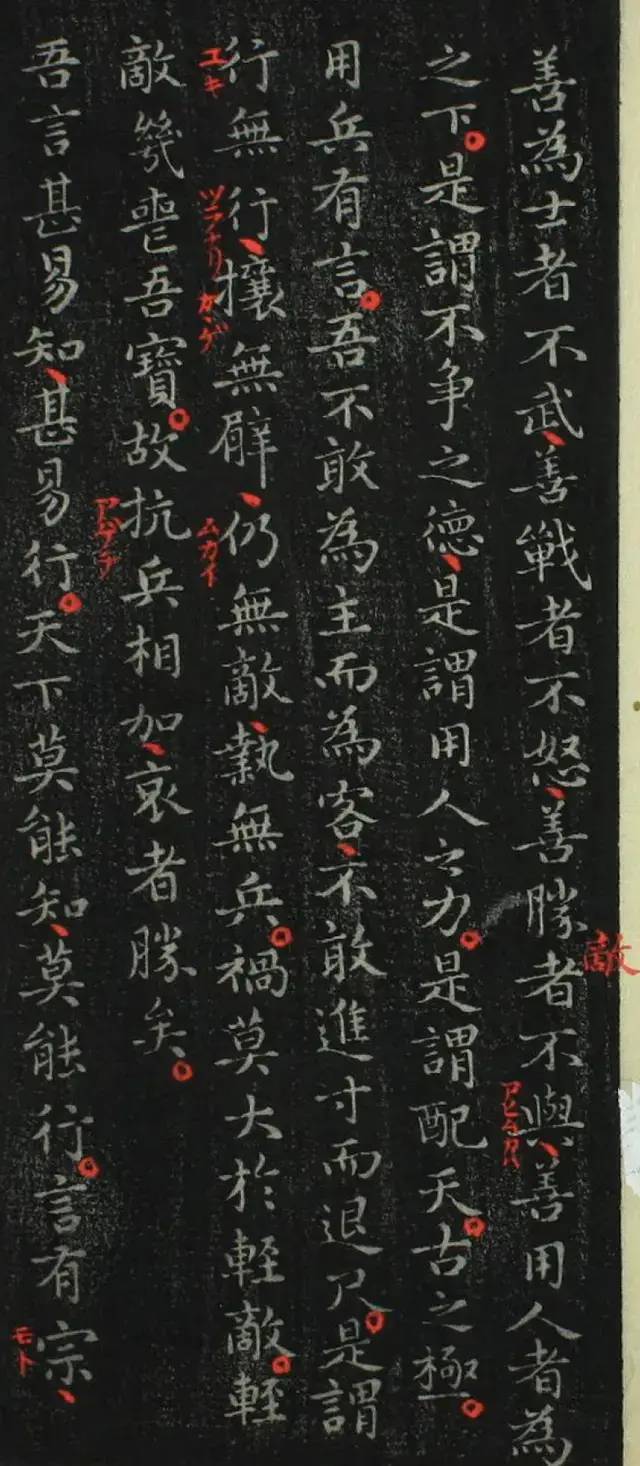 善為士者不武、善戰者不怒、善勝者不與、善用人者為
敵
アヒムカハ
之下。是謂不争之德、是謂用人之力。是謂配天。古之極。
用兵有言。吾不敢為主而為客、不敢進寸而退尺。是謂
行無行、攘無臂、仍無敵、執無兵。禍莫大於輕敵。輕
ユキ
ツラナリ
カヽゲ
ムカイ
敵幾喪吾寶。故抗兵相加、哀者勝矣。
アゲテ
吾言甚易知、甚易行。天下莫能知、莫能行。言有宗、
モト